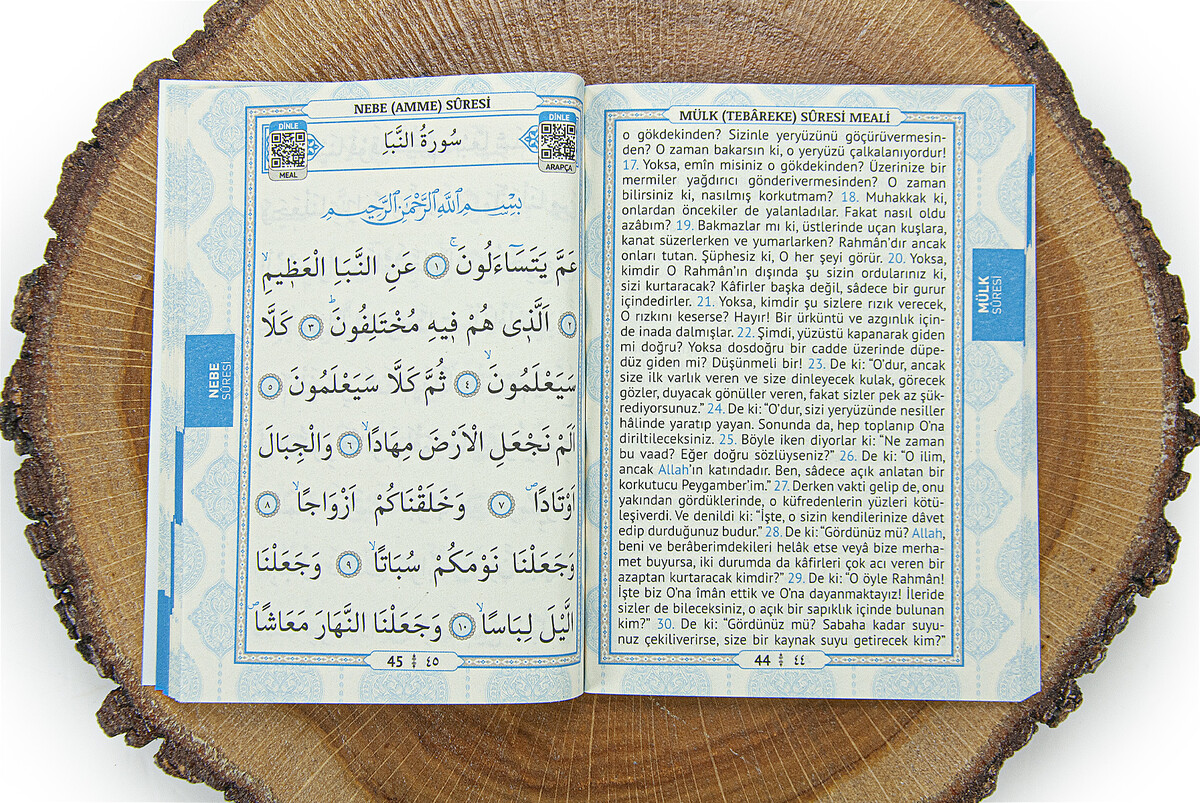 MÜLK (TEBÂREKE) SÛRESİ MEALİ
o gökdekinden? Sizinle yeryüzünü göçürüvermesin-
den? O zaman bakarsın ki, o yeryüzü çalkalanıyordur!
17. Yoksa, emîn misiniz o gökdekinden? Üzerinize bir
mermiler yağdırıcı gönderivermesinden? O zaman
bilirsiniz ki, nasılmış korkutmam? 18. Muhakkak ki,
onlardan öncekiler de yalanladılar. Fakat nasıl oldu
azâbım? 19. Bakmazlar mı ki, üstlerinde uçan kuşlara,
kanat süzerlerken ve yumarlarken? Rahmân'dır ancak
onları tutan. Şüphesiz ki, O her şeyi görür. 20. Yoksa,
kimdir O Rahmân'ın dışında şu sizin ordularınız ki,
sizi kurtaracak? Kâfirler başka değil, sâdece bir gurur
içindedirler. 21. Yoksa, kimdir şu sizlere rızık verecek,
O rızkını keserse? Hayır! Bir ürküntü ve azgınlık için-
de inada dalmışlar. 22. Şimdi, yüzüstü kapanarak giden
mi doğru? Yoksa dosdoğru bir cadde üzerinde düpe-
düz giden mi? Düşünmeli bir! 23. De ki: “O'dur, ancak
size ilk varlık veren ve size dinleyecek kulak, görecek
gözler, duyacak gönüller veren, fakat sizler pek az şük-
rediyorsunuz.” 24. De ki: “O'dur, sizi yeryüzünde nesiller
hâlinde yaratıp yayan. Sonunda da, hep toplanıp O'na
diriltileceksiniz. 25. Böyle iken diyorlar ki: “Ne zaman
bu vaad? Eğer doğru sözlüyseniz?” 26. De ki: “O ilim,
ancak Allah'ın katındadır. Ben, sâdece açık anlatan bir
korkutucu Peygamber'im.” 27. Derken vakti gelip de, onu
yakından gördüklerinde, o küfredenlerin yüzleri kötü-
leşiverdi. Ve denildi ki: “İşte, o sizin kendilerinize dâvet
edip durduğunuz budur.” 28. De ki: “Gördünüz mü? Allah,
beni ve berâberimdekileri helâk etse veyâ bize merha-
met buyursa, iki durumda da kâfirleri çok acı veren bir
azaptan kurtaracak kimdir?” 29. De ki: “O öyle Rahmân!
İşte biz O'na îmân ettik ve O'na dayanmaktayız! İleride
sizler de bileceksiniz, o açık bir sapıklık içinde bulunan
kim?” 30. De ki: “Gördünüz mü? Sabaha kadar suyu-
nuz çekiliverirse, size bir kaynak suyu getirecek kim?”
44 ٤٤
MÜLK
SÛRESİ
NEBE (AMME) SÛRESİ
DİNLE
ARAPÇA
سُورَةُ النَّبَأِ
DİNLE
MEAL
بِسْمِ اللّٰهِ الرَّحْمٰنِ الرَّحِيمِ
عَمَّ يَتَسَٓاءَلُونَۚ ﴿١﴾ عَنِ النَّبَاِ الْعَظ۪يمِۙ
﴿٢﴾ اَلَّذ۪ي هُمْ ف۪يهِ مُخْتَلِفُونَۜ ﴿٣﴾ كَلَّا
سَيَعْلَمُونَۙ ﴿٤﴾ ثُمَّ كَلَّا سَيَعْلَمُونَ ﴿٥﴾
اَلَمْ نَجْعَلِ الْاَرْضَ مِهَادًاۙ ﴿٦﴾ وَالْجِبَالَ
اَوْتَادًاۖ ﴿٧﴾ وَخَلَقْنَاكُمْ اَزْوَاجًاۙ ﴿٨﴾
وَجَعَلْنَا نَوْمَكُمْ سُبَاتًاۙ ﴿٩﴾ وَجَعَلْنَا
الَّيْلَ لِبَاسًاۙ ﴿١٠﴾ وَجَعَلْنَا النَّهَارَ مَعَاشًاۖ
45 ٤٥
NEBE
SÛRESİ